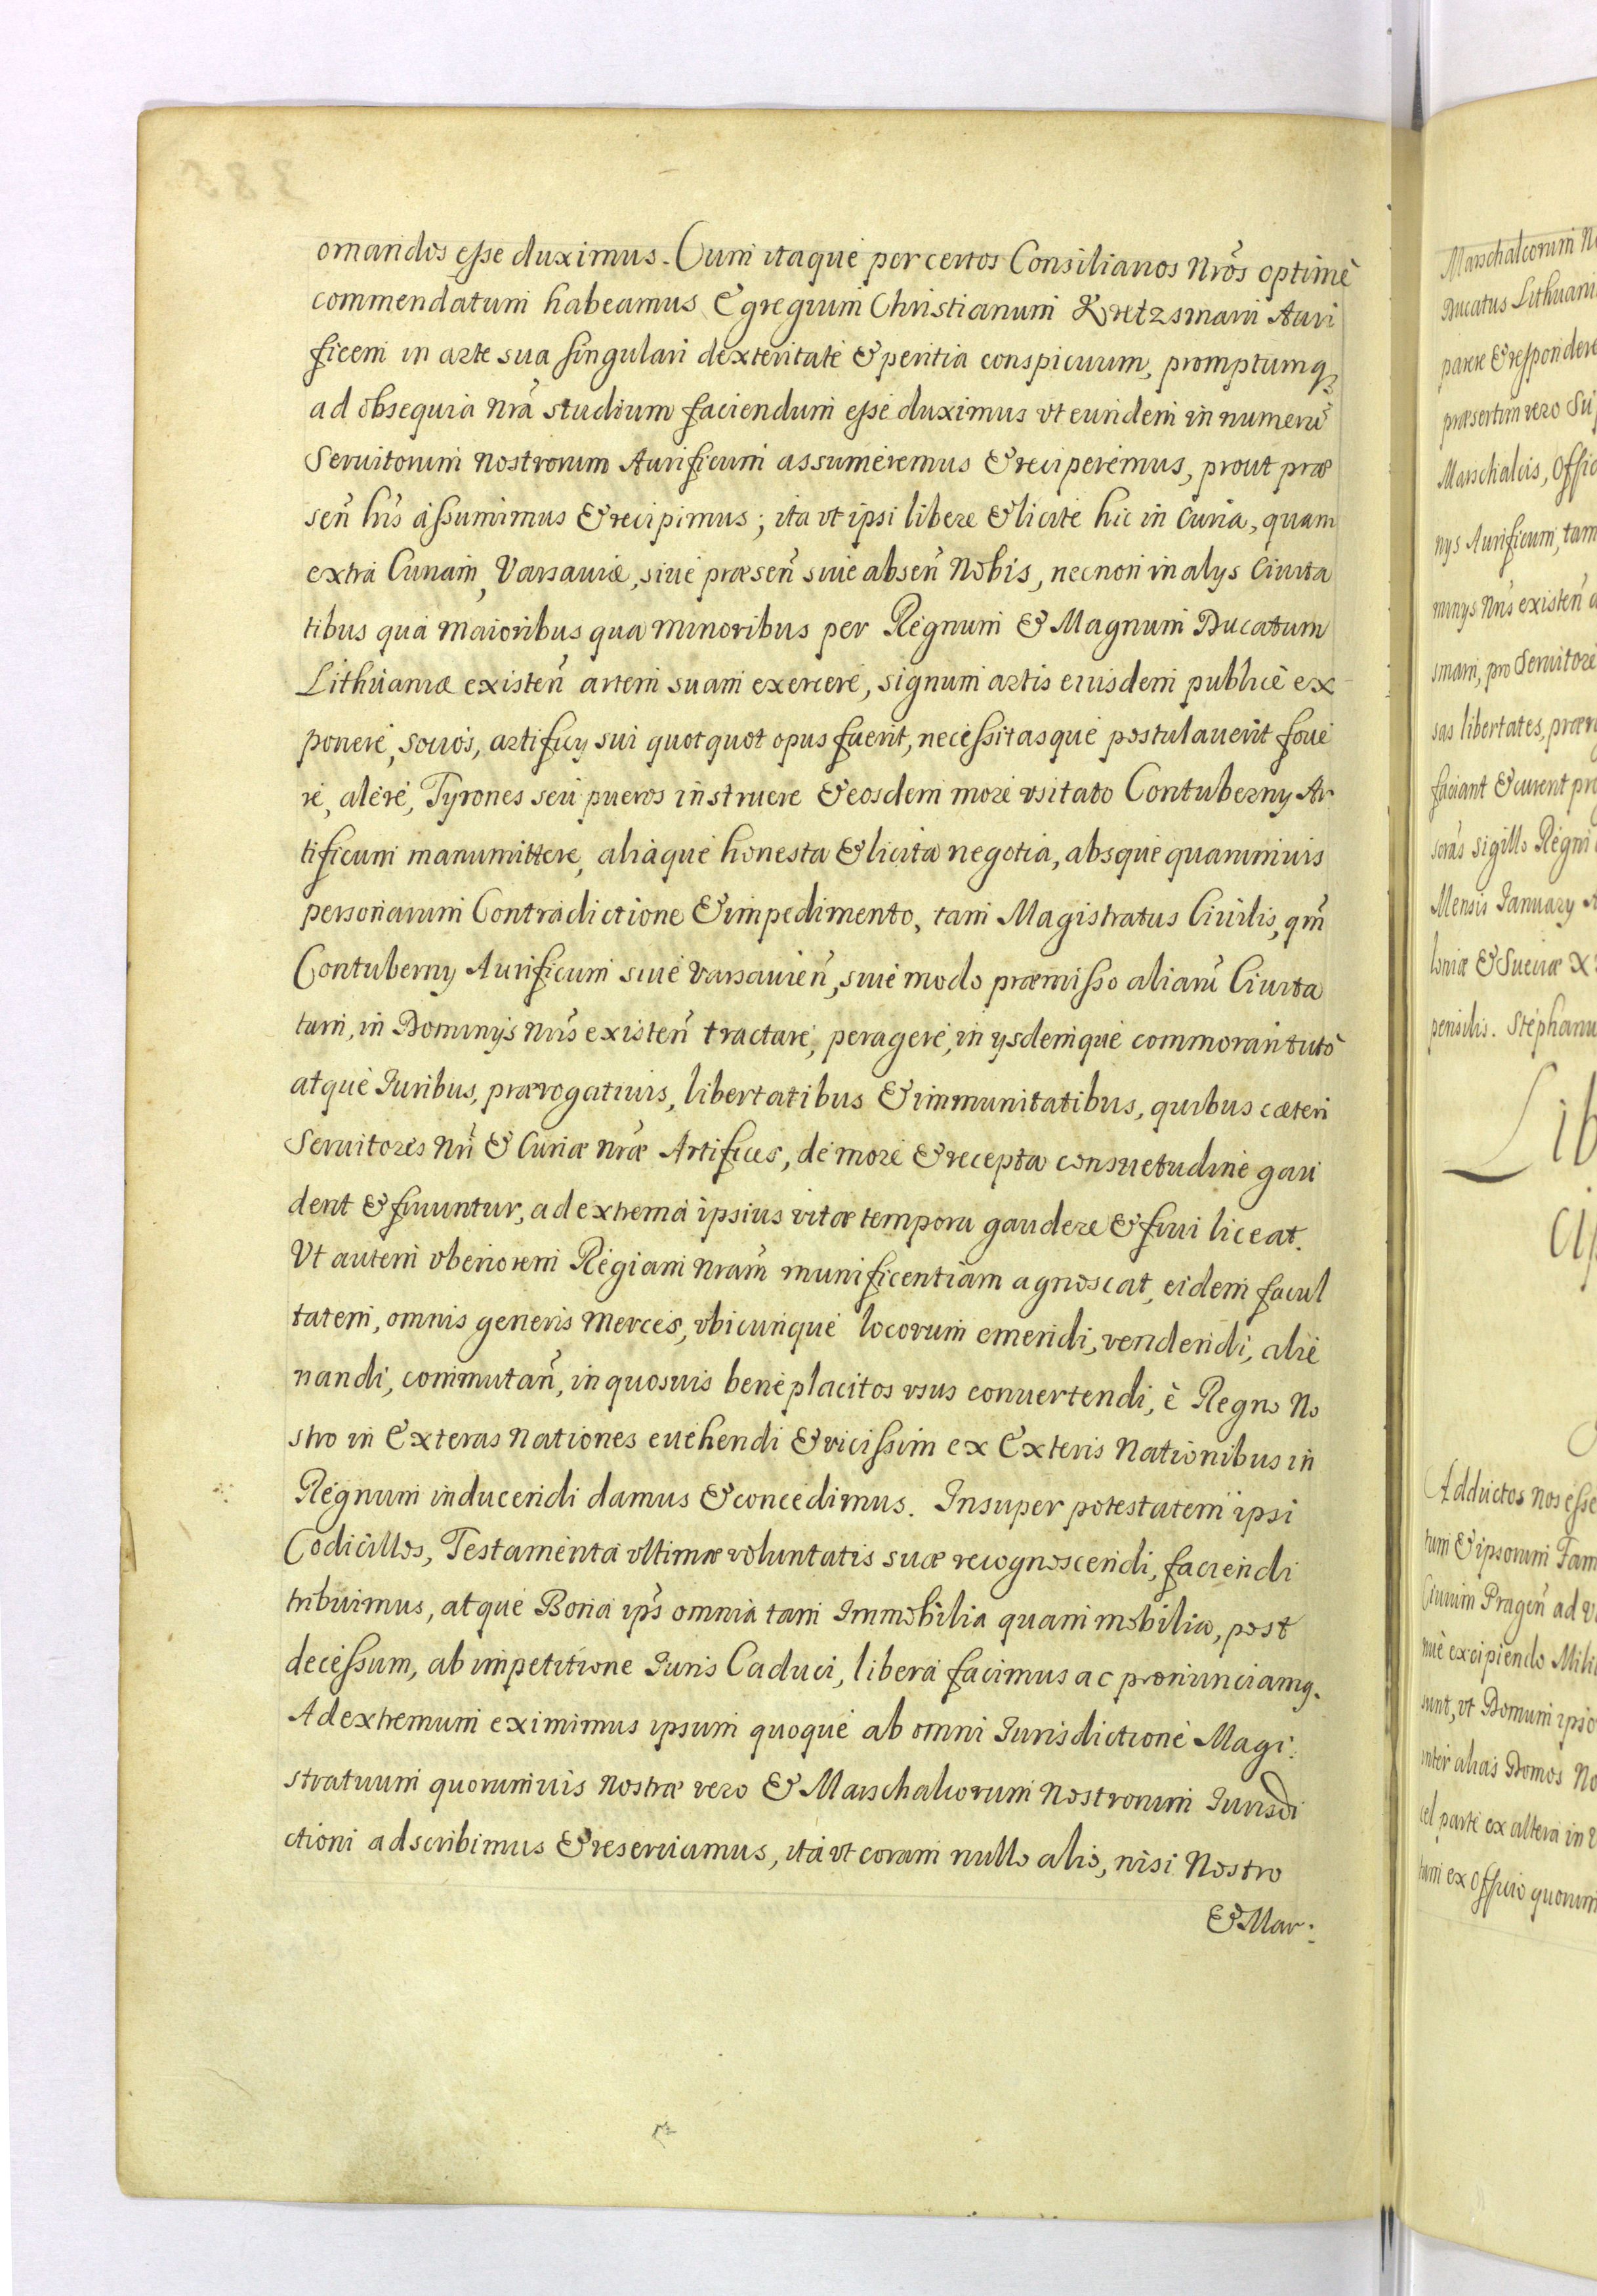 ornandos esse duximus. Cum itaque per certos Consiliarios Nrõs optimè
commendatum habeamus Egregium Christianum Kretzsmarn Auri
ficem in arte sua singulari dexteritate & peritia conspicuum, promptumq
ad obsequia Nrã studium faciendum esse duximus vt eundem in numerũ
Seruitorum Nostrorum Aurificum assumeremus & reciperemus, prout præ
señ hís assumimus & recipimus; ita vt ipsi libere & licite hic in Curia, quam
extra Curiam, Varsauiæ, siue præseñ siue abseñ Nobis, necnon in alys Ciuita
tibus qua maioribus qua minoribus per Regnum & Magnum Ducatum
Lithuaniæ existeñ artem suam exercere, signum artis eiusdem publicè ex
ponere, socios, artificy sui quotquot opus fuerit, necessitasque postulauerit foue
re, alere, Tyrones seu pueros instruere & eosdem more vsitato Contuberny Ar
tificum manumittere, aliaque honesta & licita negotia, absque quarumuis
personarum Contradictione & impedimento, tam Magistratus Ciuilis, qm̃
Contuberny Aurificum siue Varsauieñ, siue modo præmisso aliarũ Ciuita
tum, in Dominijs Nrĩs existeñ tractare, peragere, in ysdemque commorari tutò
atque Juribus, prærogatiuis, libertatibus & immunitatibus, quibus cæteri
Seruitores Nrĩ & Curiæ Nræ Artifices, de more & recepta consuetudine gau
dent & fruuntur, ad extrema ipsius vitæ tempora gaudere & frui liceat.
Vt autem vberiorem Regiam Nram̃ munificentiam agnoscat, eidem facul
tatem, omnis generis merces, vbicunque locorum emendi, vendendi, alie
nandi, commutañ, in quosuis beneplacitos vsus conuertendi, è Regno No
stro in Exteras Nationes euehendi & vicissim ex Exteris Nationibus in
Regnum inducendi damus & concedimus. Insuper potestatem ipsi
Codicillos, Testamenta vltimæ voluntatis suæ recognoscendi, faciendi
tribuimus, atque Bona ips̃ omnia tam Immobilia quam mobilia, post
decessum, ab impetitione Juris Caduci, libera facimus ac pronunciamq.
Ad extremum eximimus ipsum quoque ab omni Jurisdictione Magi:
stratuum quorumuis Nostræ vero & Marschalcorum Nostrorum Jurisdi
ctioni adscribimus & reseruamus, ita vt coram nullo alio, nisi Nostro
& Mar:
Marschalcorum
Ducatus Lithuani
parere & respondere
præsertim vero
Marschalcis,
nys Aurificum, tam
minys Nrĩs existeñ
smarn, pro Seruitore
sas libertates,
faciant & curent
sigillo Regni
Mensis January
loniæ & Sueciæ
pensilis.
Lib
Adductos nos esse
tum & ipsorum
Ciuium Prageñ ad
nue excipiendo
sunt, vt Domum
inter alias Domos
cel parte ex altera in
tum ex Officio quorum